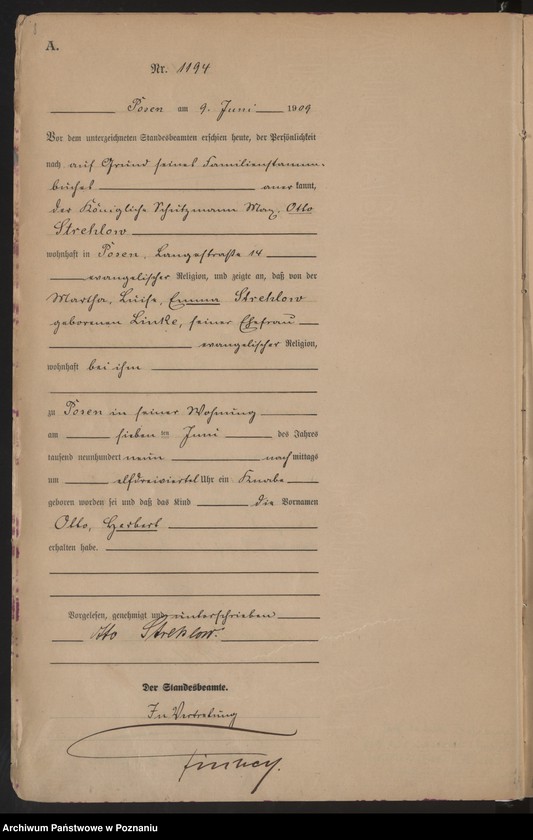 A.
Nr. 1194
Posen am 9. Juni 1909
Vor dem unterzeichneten Standesbeamten erschien heute, der Persönlichkeit
nach auf Grund seines Familienstamm-
buches anerkannt,
der Königliche Schutzmann Max, Otto
Strehlow
wohnhaft in Posen, Langestraße 14
evangelischer Religion, und zeigte an, daß von der
Martha, Luise, Emma Strehlow
geborenen Linke, seiner Ehefrau
evangelischer Religion,
wohnhaft bei ihm
zu Posen in seiner Wohnung
am sieben ten Juni des Jahres
tausend neunhundert neun nachmittags
um elfdreiviertel Uhr ein Knabe
geboren worden sei und daß das Kind die Vornamen
Otto, Herbert
erhalten habe.
Vorgelesen, genehmigt und unterschrieben
Otto Strehlow.
Der Standesbeamte.
In Vertretung
Archiwum Państwowe w Poznaniu